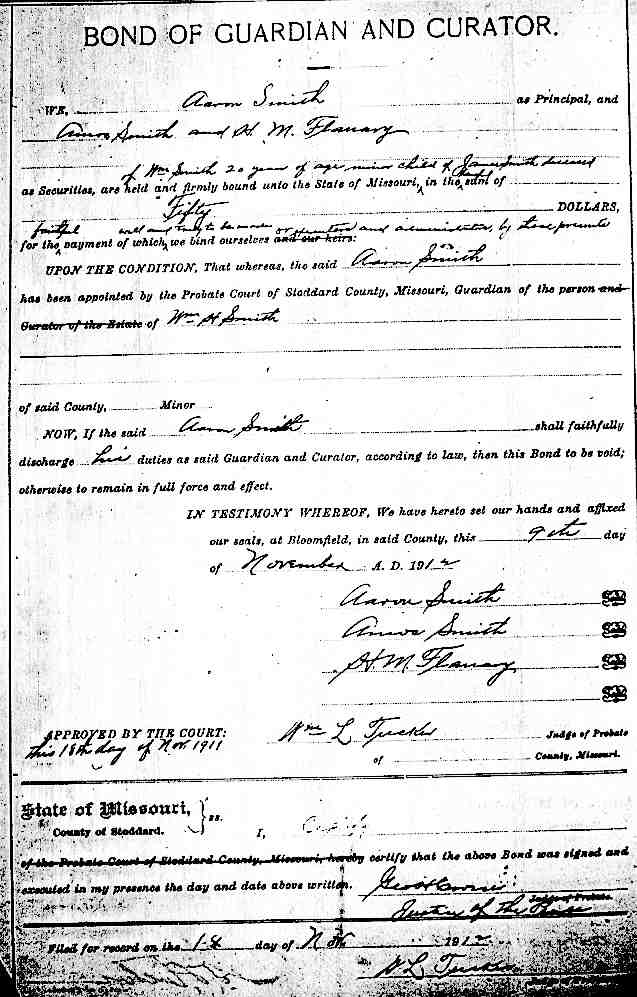 BOND OF GUARDIAN AND CURATOR.
WE, Aaron Smith as Principal, and
Amos Smith and H. M. Flanary
of Wm Smith 20 year of age minor child of James Smith deceased
as Securities, are held and firmly bound unto the State of Missouri, in the sum of
Fifty DOLLARS,
faithful well and truly to be made and administrators, by these presents
for the payment of which, we bind ourselves and our heirs:
UPON THE CONDITION, That whereas, the said Aaron Smith
has been appointed by the Probate Court of Stoddard County, Missouri, Guardian of the person and
Curator of the Estate of Wm H Smith
of said County, Minor
NOW, If the said Aaron Smith shall faithfully
discharge his duties as said Guardian and Curator, according to law, then this Bond to be void;
otherwise to remain in full force and effect.
IN TESTIMONY WHEREOF, We have hereto set our hands and affixed
our seals, at Bloomfield, in said County, this 9th day
of November A. D. 1912
Aaron Smith
Amos Smith
H M Flanary
APPROVED BY THE COURT: Wm L Tucker Judge of Probate
this 18th day of Nov. 1911
of County, Missouri.
State of Missouri, } ss.
County of Stoddard. I,
of the Probate Court of Stoddard County, Missouri, hereby certify that the above Bond was signed and
executed in my presence the day and date above written.
Judge of Probate
Justice of the Peace
Filed for record on the 18 day of Nov 1912
W L Tucker